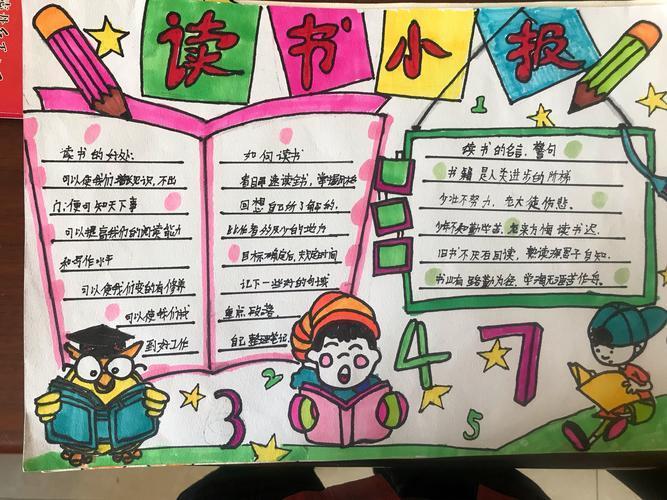 读书小报
读书的好处:
可以使我们增长知识,不出
门,便可知天下事
可以提高我们的阅读能力
和写作水平
可以使我们变的有修养
可以使我们找
到好工作
如何读书
省目录速读全书,掌握风格
回想自己所了解的,
比作者效及少的边力
目标确定后,大块定时间
记下一些好的句读
重点 段落
自己整理笔记.
读书的名言、警句
书籍是人类进步的阶梯
少壮不努力,老大徒伤悲
少年不知勤学苦,老来方悔读书迟.
旧书不厌百回读,熟读深思子自知.
书山有路勤为径,学海无涯苦作舟.
1
2
3
4
5
7